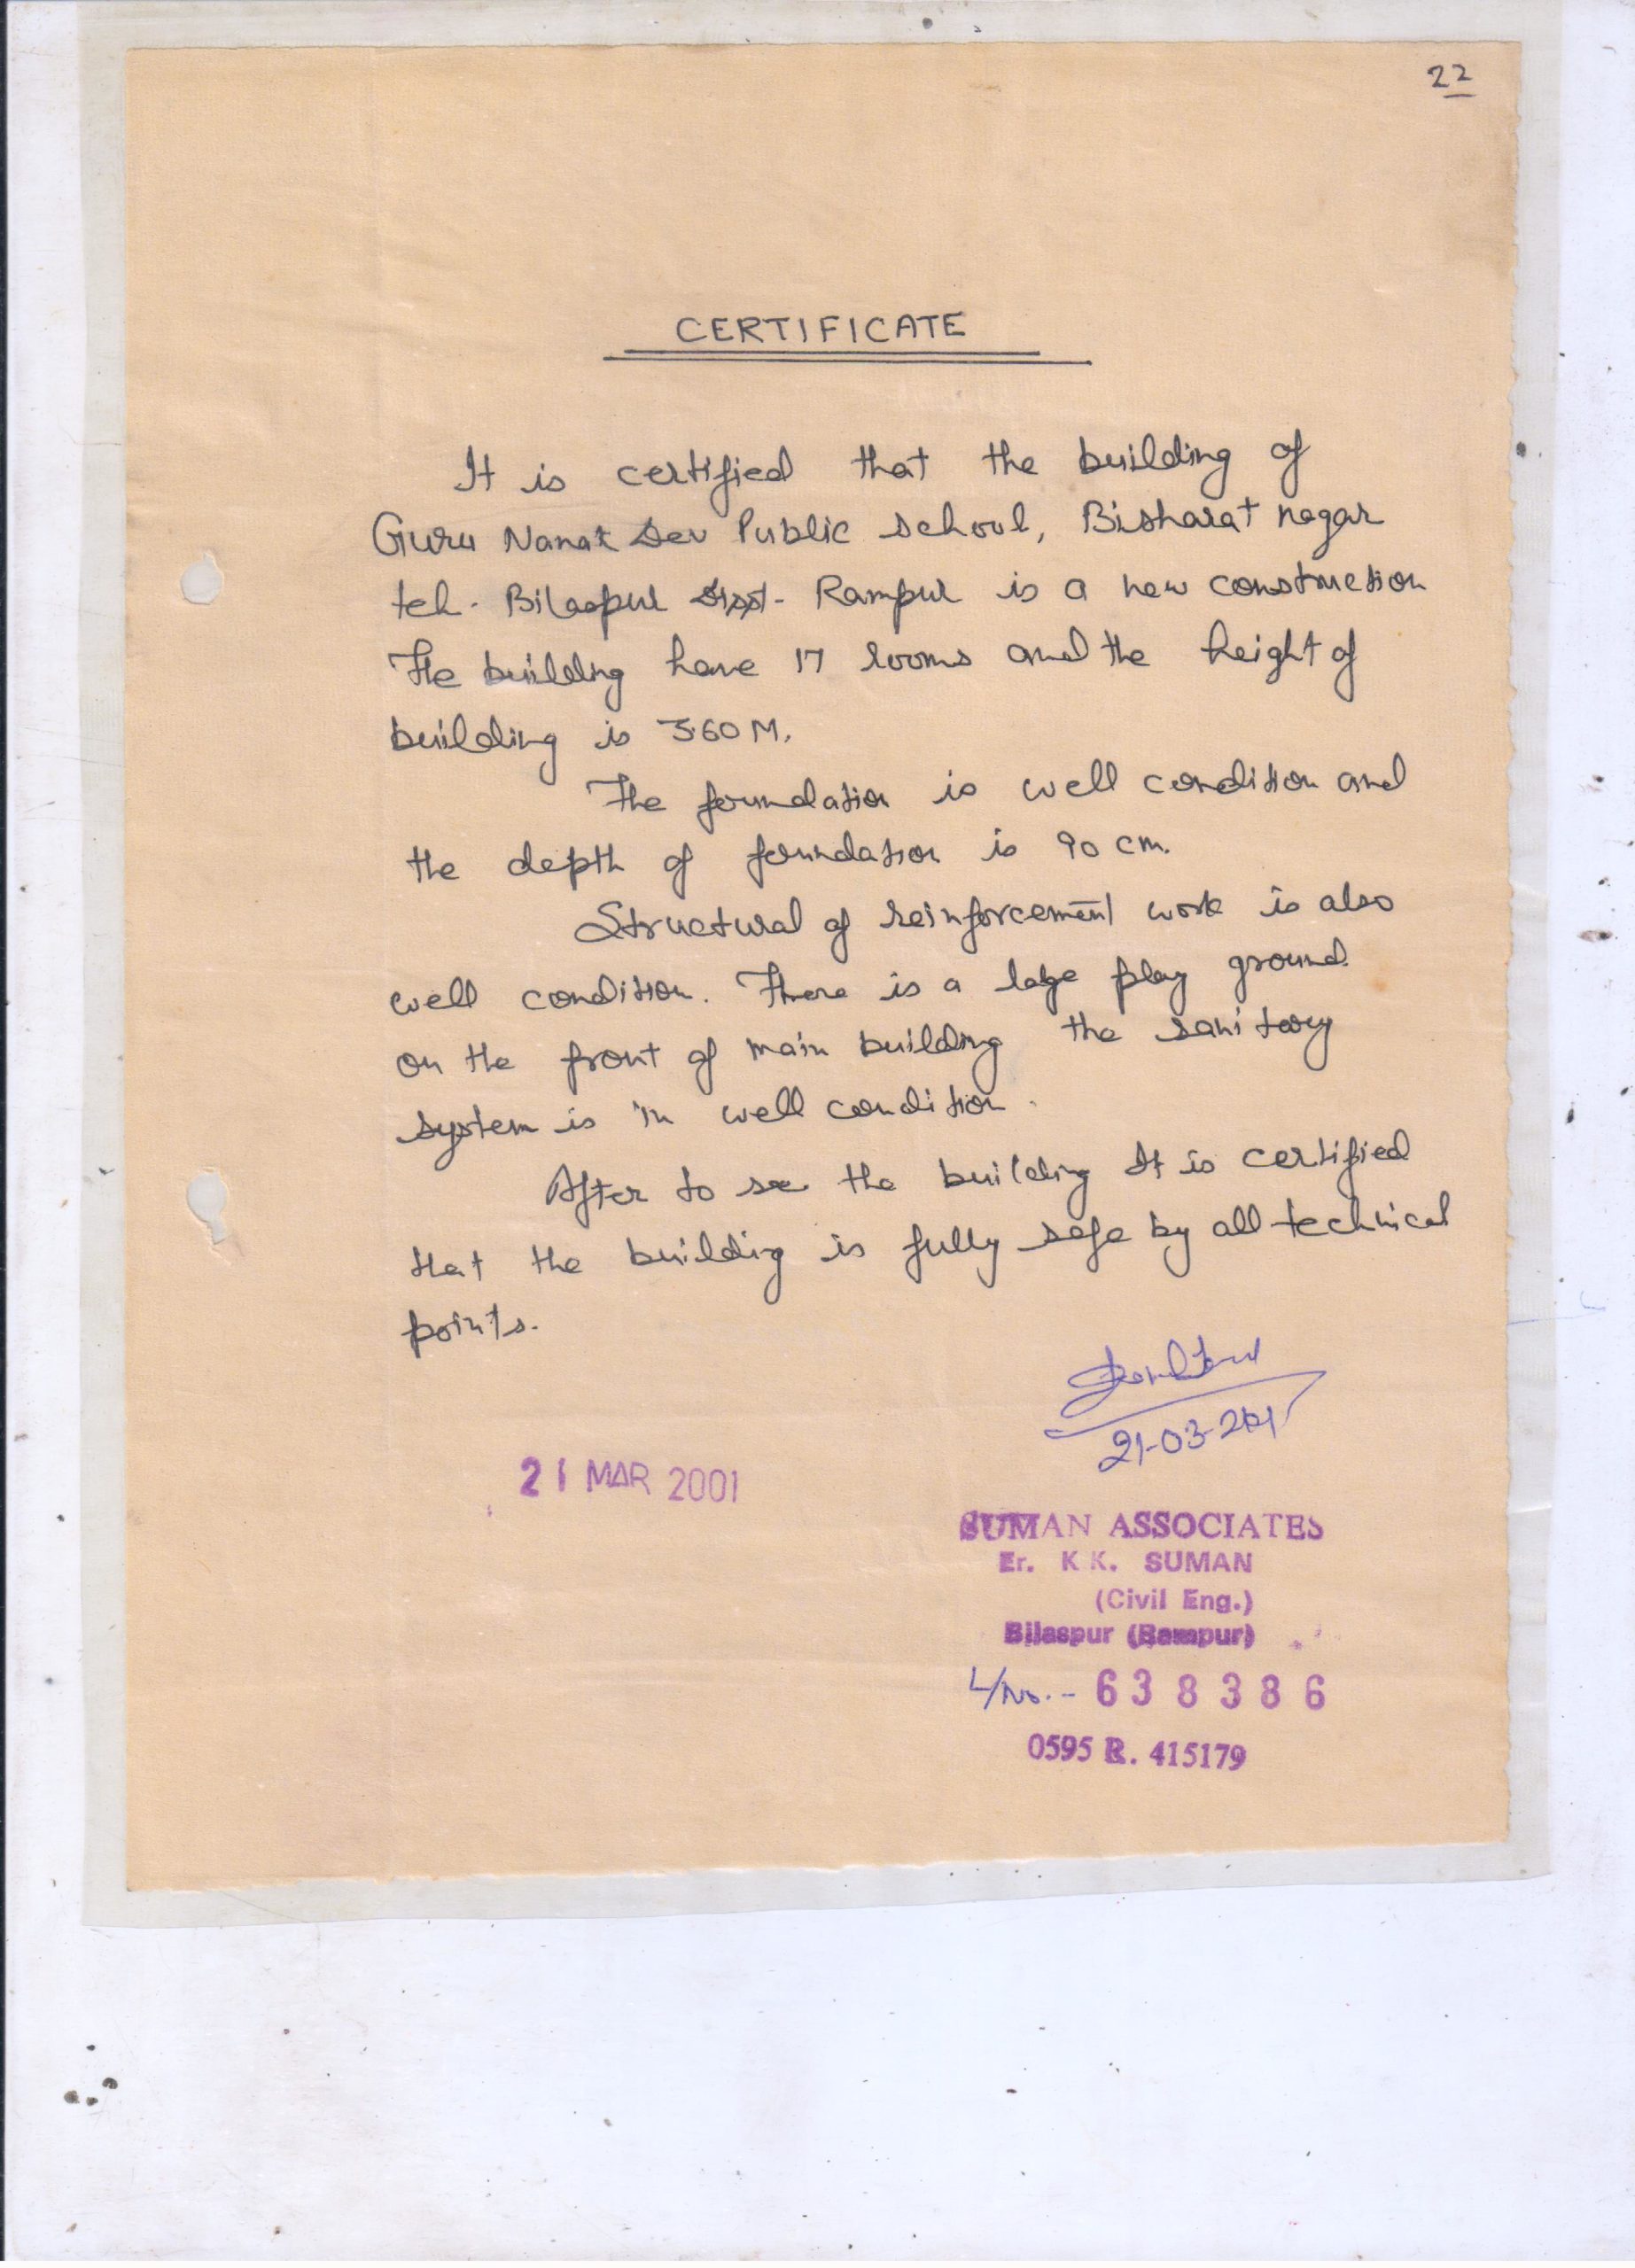 22
CERTIFICATE
It is certified that the building of
Guru Nanak Dev Public School, Bisharat nagar
teh. Bilaspur Disst- Rampur is a new construction
The building have 17 rooms and the height of
building is 3.60 M.
The foundation is well condition and
the depth of foundation is 90 cm.
Structural of reinforcement work is also
well condition. There is a large play ground
on the front of main building the sanitary
system is in well condition.
After to see the building It is certified
that the building is fully safe by all technical
points.
21-03-2001
21 MAR 2001
SUMAN ASSOCIATES
Er. K K. SUMAN
(Civil Eng.)
Bilaspur (Rampur)
L/No. - 638386
0595 R. 415179